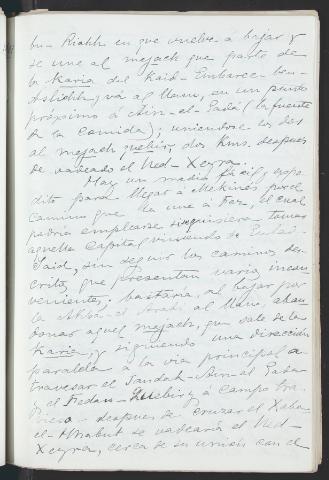 bu-Riahh en que vuelve á bajar y
se une al mejach que parte de
la Karia del Kaid-Embarec-ben-
, vá al llano, en un punto
próximo á Ain-el-Gadá (la fuente
de la comida); uniendose los dos
al mejach quebir, dos Kms. despues
de vadeado el Ued-Xeyra.
Hay un medio fácil y espe
dito para llegar á Mekinés por el
camino que la une á Fez, el cual
podria emplearse si quisiera tomar
aquella capital viniendo de
Said, sin seguir los caminos des-
critos, que presentan varios incon
venientes; bastaría, al bajar por
la Akba-el- al llano, aban
donar aquel mejach, que sale de la
Karia, y siguiendo una dirección
paralela á la via principal a-
travesar el -Ain-el Gada
el Fedan-Quebir, y á campo tra
viesa - despues de cruzar el Xaba-
el- se vadearia el Ued-
Xeyra, cerca de su unión con el